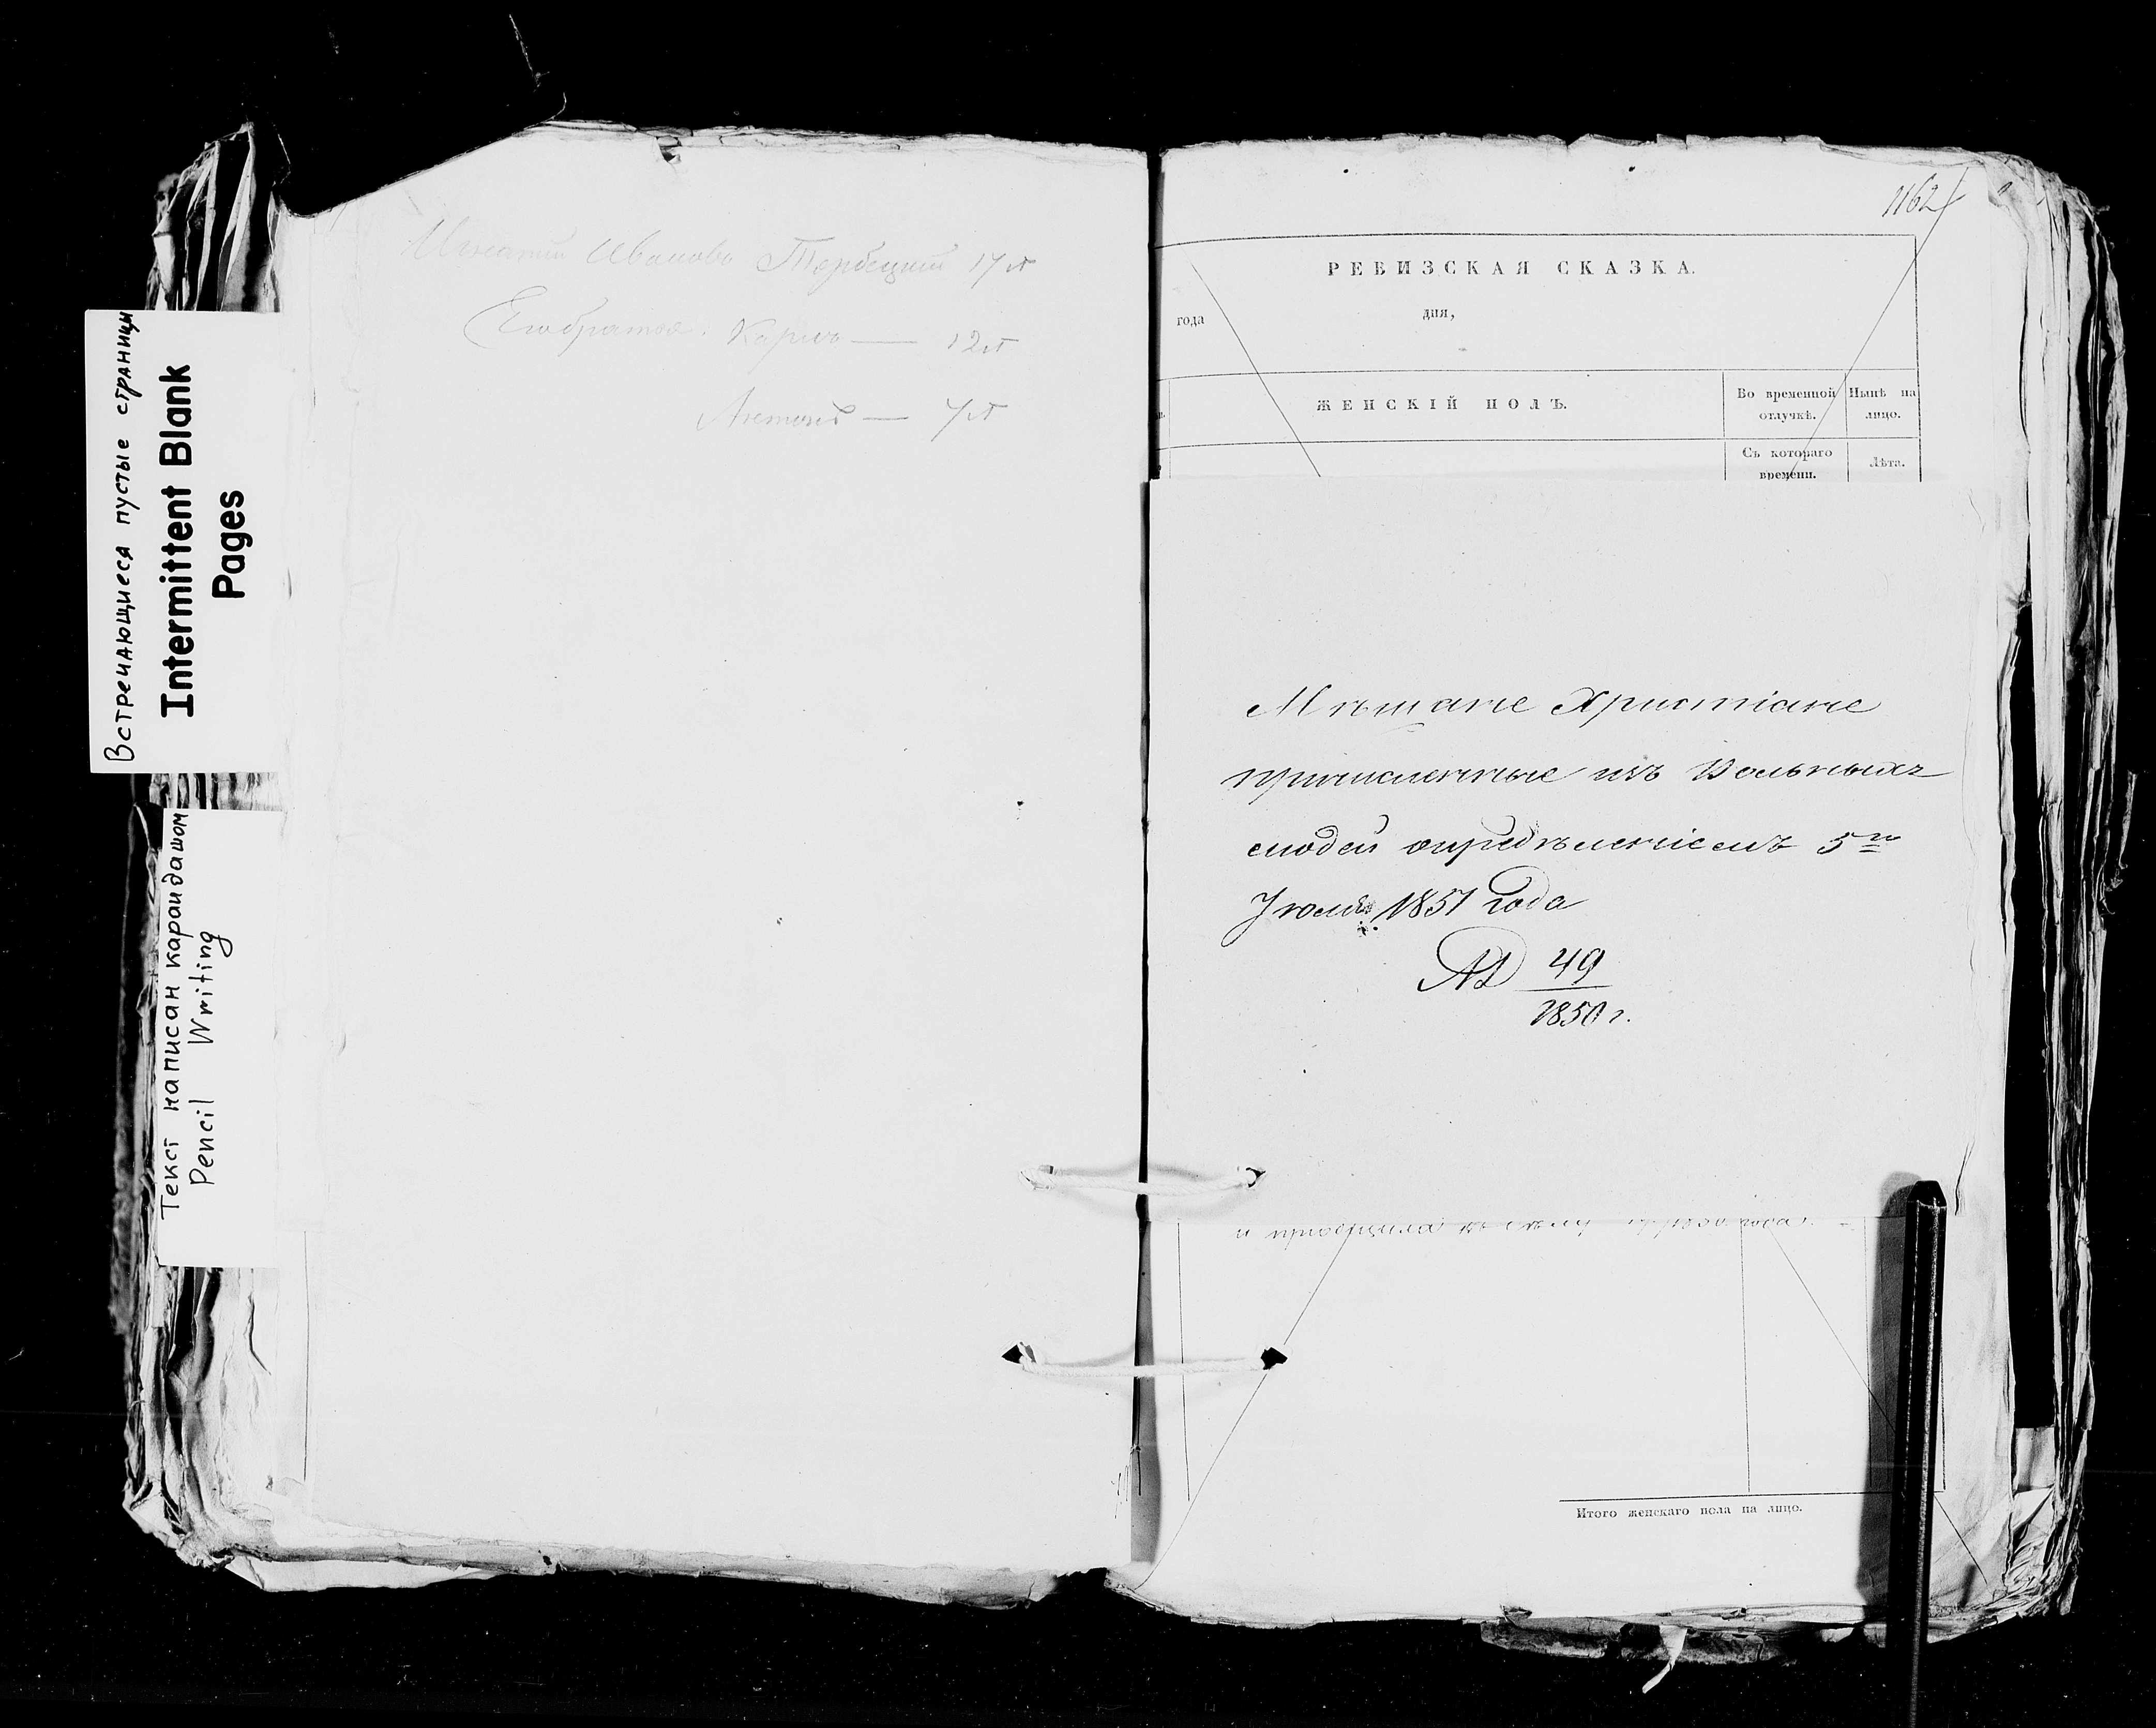 Встречающиеся пустые страницы
Intermittent Blank
Pages
Текст написан карандашом
Pencil Writing
Ивановъ 17 л
Его братья. Карлъ — 12 л
Антонъ — 7 л
1162
РЕВИЗСКАЯ СКАЗКА.
года дня,
ЖЕНСКІЙ ПОЛЪ.
Во временной отлучкѣ.
Нынѣ на лицо.
Съ котораго времени.
Лѣта.
Мѣщане Христіане
причисленные изъ Вольныхъ
людей опредѣленіемъ 5го
Іюля 1851 года
№ 49
1850 г.
Итого женскаго пола на лицо.